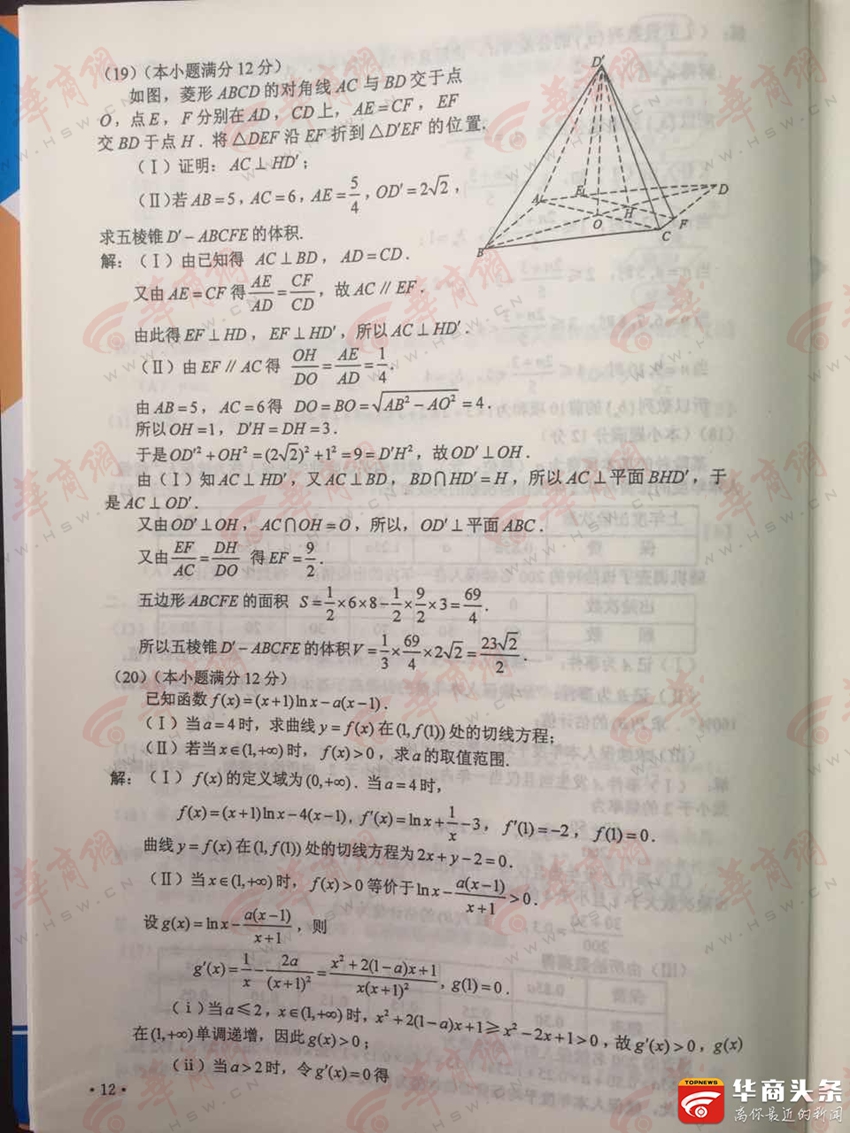 (19)(本小题满分12分)
如图,菱形ABCD的对角线AC与BD交于点
O,点E,F分别在AD,CD上,AE=CF,EF
交BD于点H.将△DEF沿EF折到△D'EF的位置.
(Ⅰ)证明:AC⊥HD';
(Ⅱ)若AB=5,AC=6,AE=5/4,OD'=2√2,
求五棱锥D'-ABCFE的体积.
D'
A
E
D
O
H
F
B
C
解:(Ⅰ)由已知得 AC⊥BD,AD=CD.
又由AE=CF得AE/AD=CF/CD,故AC//EF.
由此得EF⊥HD,EF⊥HD',所以AC⊥HD'.
(Ⅱ)由EF//AC得 OH/DO=AE/AD=1/4.
由AB=5,AC=6得 DO=BO=√(AB²-AO²)=4.
所以OH=1,D'H=DH=3.
于是OD'²+OH²=(2√2)²+1²=9=D'H²,故OD'⊥OH.
由(Ⅰ)知AC⊥HD',又AC⊥BD,BD∩HD'=H,所以AC⊥平面BHD',于
是AC⊥OD'.
又由OD'⊥OH,AC∩OH=O,所以,OD'⊥平面ABC.
又由EF/AC=DH/DO 得EF=9/2.
五边形ABCFE的面积 S=1/2×6×8-1/2×9/2×3=69/4.
所以五棱锥D'-ABCFE的体积V=1/3×69/4×2√2=23√2/2.
(20)(本小题满分12分)
已知函数f(x)=(x+1)ln x-a(x-1).
(Ⅰ)当a=4时,求曲线y=f(x)在(1,f(1))处的切线方程;
(Ⅱ)若当x∈(1,+∞)时,f(x)>0,求a的取值范围.
解:(Ⅰ)f(x)的定义域为(0,+∞).当a=4时,
f(x)=(x+1)ln x-4(x-1),f'(x)=ln x+1/x-3,f'(1)=-2,f(1)=0.
曲线y=f(x)在(1,f(1))处的切线方程为2x+y-2=0.
(Ⅱ)当x∈(1,+∞)时,f(x)>0等价于ln x-a(x-1)/(x+1)>0.
设g(x)=ln x-a(x-1)/(x+1),则
g'(x)=1/x-2a/(x+1)²=(x²+2(1-a)x+1)/(x(x+1)²),g(1)=0.
(ⅰ)当a≤2,x∈(1,+∞)时,x²+2(1-a)x+1≥x²-2x+1>0,故g'(x)>0,g(x)
在(1,+∞)单调递增,因此g(x)>0;
(ⅱ)当a>2时,令g'(x)=0得
·12·
TOPNEWS
华商头条
离你最近的新闻